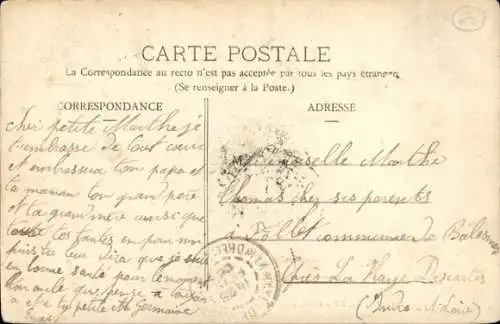 CARTE POSTALE
La Correspondance au recto n'est pas acceptée par tous les pays étrangers
(Se renseigner à la Poste.)
CORRESPONDANCE
cher petite Marthe je
t'embrasse de tout cœur
et embrassera ton papa et
ta maman ton grand père
et ta grand mère ainsi que
tes tantes en
leur dira que je suis
en bonne santé pour le moment
ton oncle qui pense à
et à ta petite Germaine
ADRESSE
Mademoiselle Marthe
Thomas chez ses parents
à Follet commune de Balesmes
Près La Haye Descartes
(Indre & Loire)